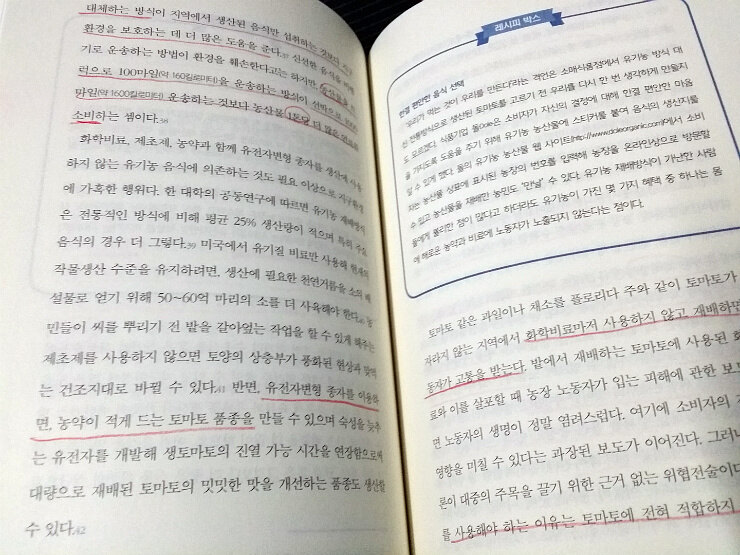 대체하는 방식이 지역에서 생산된 음식만 섭취하는 것보다
환경을 보호하는 데 더 많은 도움을 준다.37 신선한 음식을
기로 운송하는 방법이 환경을 훼손한다고는 하지만, 농산물을
럭으로 100마일(약 160킬로미터)을 운송하는 방식이 선박으로
만일(약 1600킬로미터) 운송하는 것보다 농산물 1톤당 더 많은 연료를
소비하는 셈이다.38
화학비료, 제초제, 농약과 함께 유전자변형 종자를 생산에 사용
하지 않는 유기농 음식에 의존하는 것도 필요 이상으로 지구환경
에 가혹한 행위다. 한 대학의 공동연구에 따르면 유기농 재배방식
은 전통적인 방식에 비해 평균 25% 생산량이 적으며 특히 주식
음식의 경우 더 그렇다.39 미국에서 유기질 비료만 사용해 현재의
작물생산 수준을 유지하려면, 생산에 필요한 천연거름을 소의 배
설물로 얻기 위해 50~60억 마리의 소를 더 사육해야 한다.40 농
민들이 씨를 뿌리기 전 밭을 갈아엎는 작업을 할 수 있게 해주는
제초제를 사용하지 않으면 토양의 상층부가 풍화된 현상과 맞먹
는 건조지대로 바뀔 수 있다.41 반면, 유전자변형 종자를 이용하
면, 농약이 적게 드는 토마토 품종을 만들 수 있으며 숙성을 늦추
는 유전자를 개발해 생토마토의 진열 가능 시간을 연장함으로써
대량으로 재배된 토마토의 밋밋한 맛을 개선하는 품종도 생산할
수 있다.42
레시피 박스
한결 편안한 음식 선택
'우리가 먹는 것이 우리를 만든다'라는 격언은 소매식품점에서 유기농 방식 대
신 전통방식으로 생산된 토마토를 고르기 전 우리를 다시 한 번 생각하게 만들지
도 모르겠다. 식품기업 돌Dole은 소비자가 자신의 결정에 대해 한결 편안한 마음
을 가지도록 도움을 주기 위해 유기농 농산물에 스티커를 붙여 음식의 생산지를
알 수 있게 했다. 돌의 유기농 농산물 웹 사이트(http://www.doleorganic.com)에서 소비
자는 농산물 상표에 표시된 농장의 번호를 입력해 농장을 온라인상으로 방문할
수 있고 농산물을 재배한 농민도 '만날' 수 있다. 유기농 재배방식이 가난한 사람
들에게 불리한 점이 많다고 하더라도 유기농이 가진 몇 가지 혜택 중 하나는 몸
에 해로운 농약과 비료에 노동자가 노출되지 않는다는 점이다.
토마토 같은 과일이나 채소를 플로리다 주와 같이 토마토가
자라지 않는 지역에서 화학비료마저 사용하지 않고 재배하면
동자가 고통을 받는다. 밭에서 재배하는 토마토에 사용된 화
료와 이를 살포할 때 농장 노동자가 입는 피해에 관한 보도
면 노동자의 생명이 정말 염려스럽다. 여기에 소비자의
영향을 미칠 수 있다는 과장된 보도가 이어진다. 그러나
론이 대중의 주목을 끌기 위한 근거 없는 위협전술이다
를 사용해야 하는 이유는 토마토에 전혀 적합하지